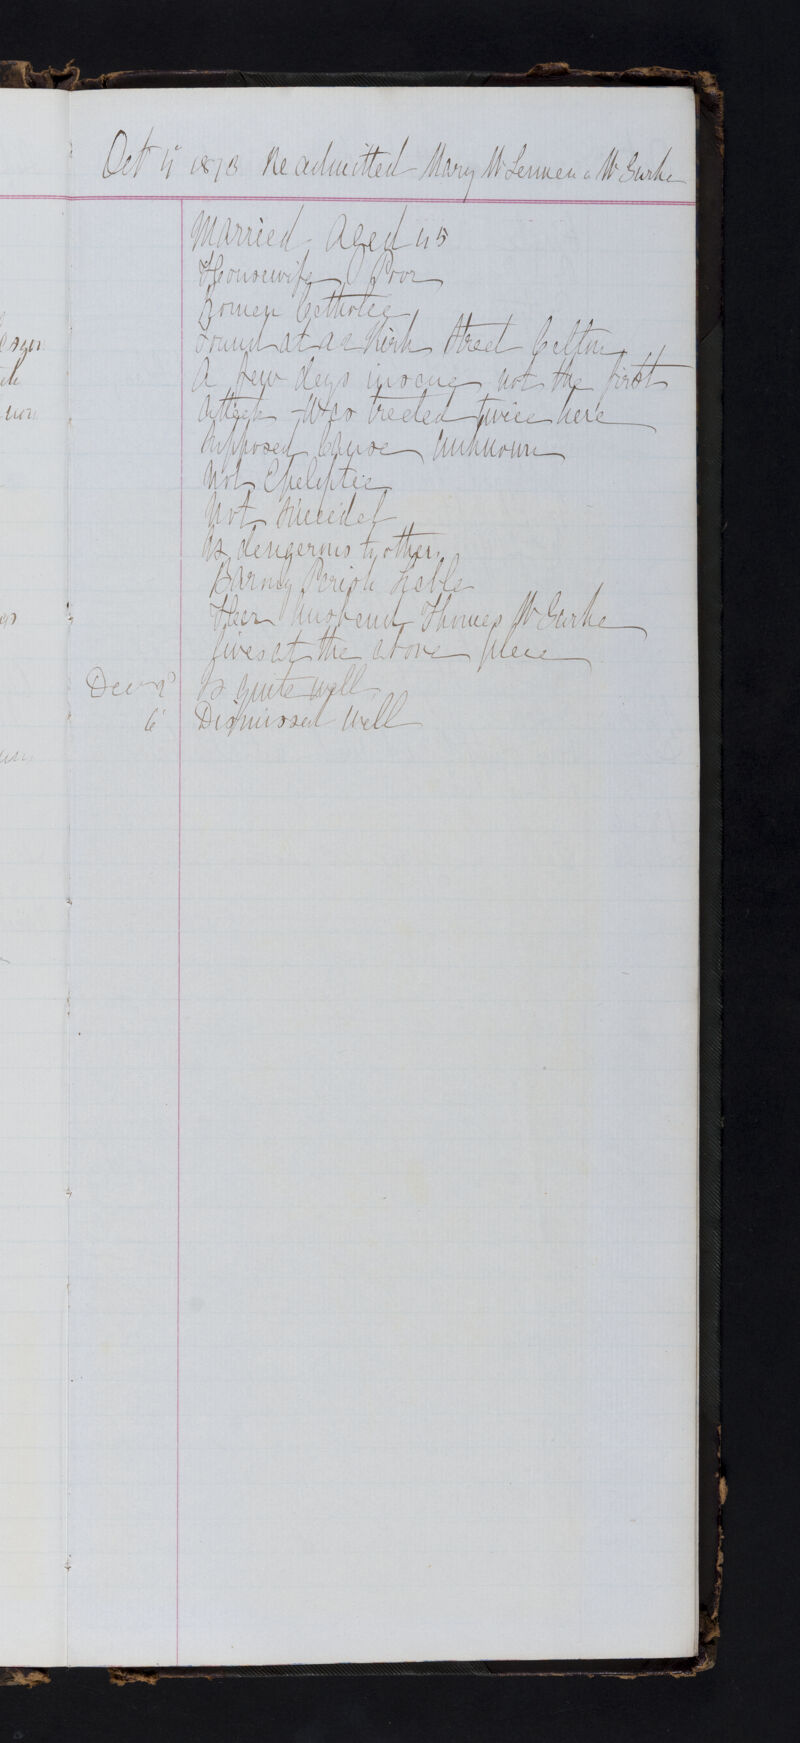 Oct 4th 1873 Readmitted Mary McLennen or McGurke
Married Aged 45
Housewife Poor
Romen Catholec
Found at 22 Kirk Street Calton
A few days insane not the first
attack Was treated twice here
Supposed Cause unknown
Not Epeleptic
Not Sucidel
Is dengerous to others
Barony Perish Lieble
Heer husbend Thomas McGurke
lives at the above place
Decr 2d Is quite well
6th Dismissed Well